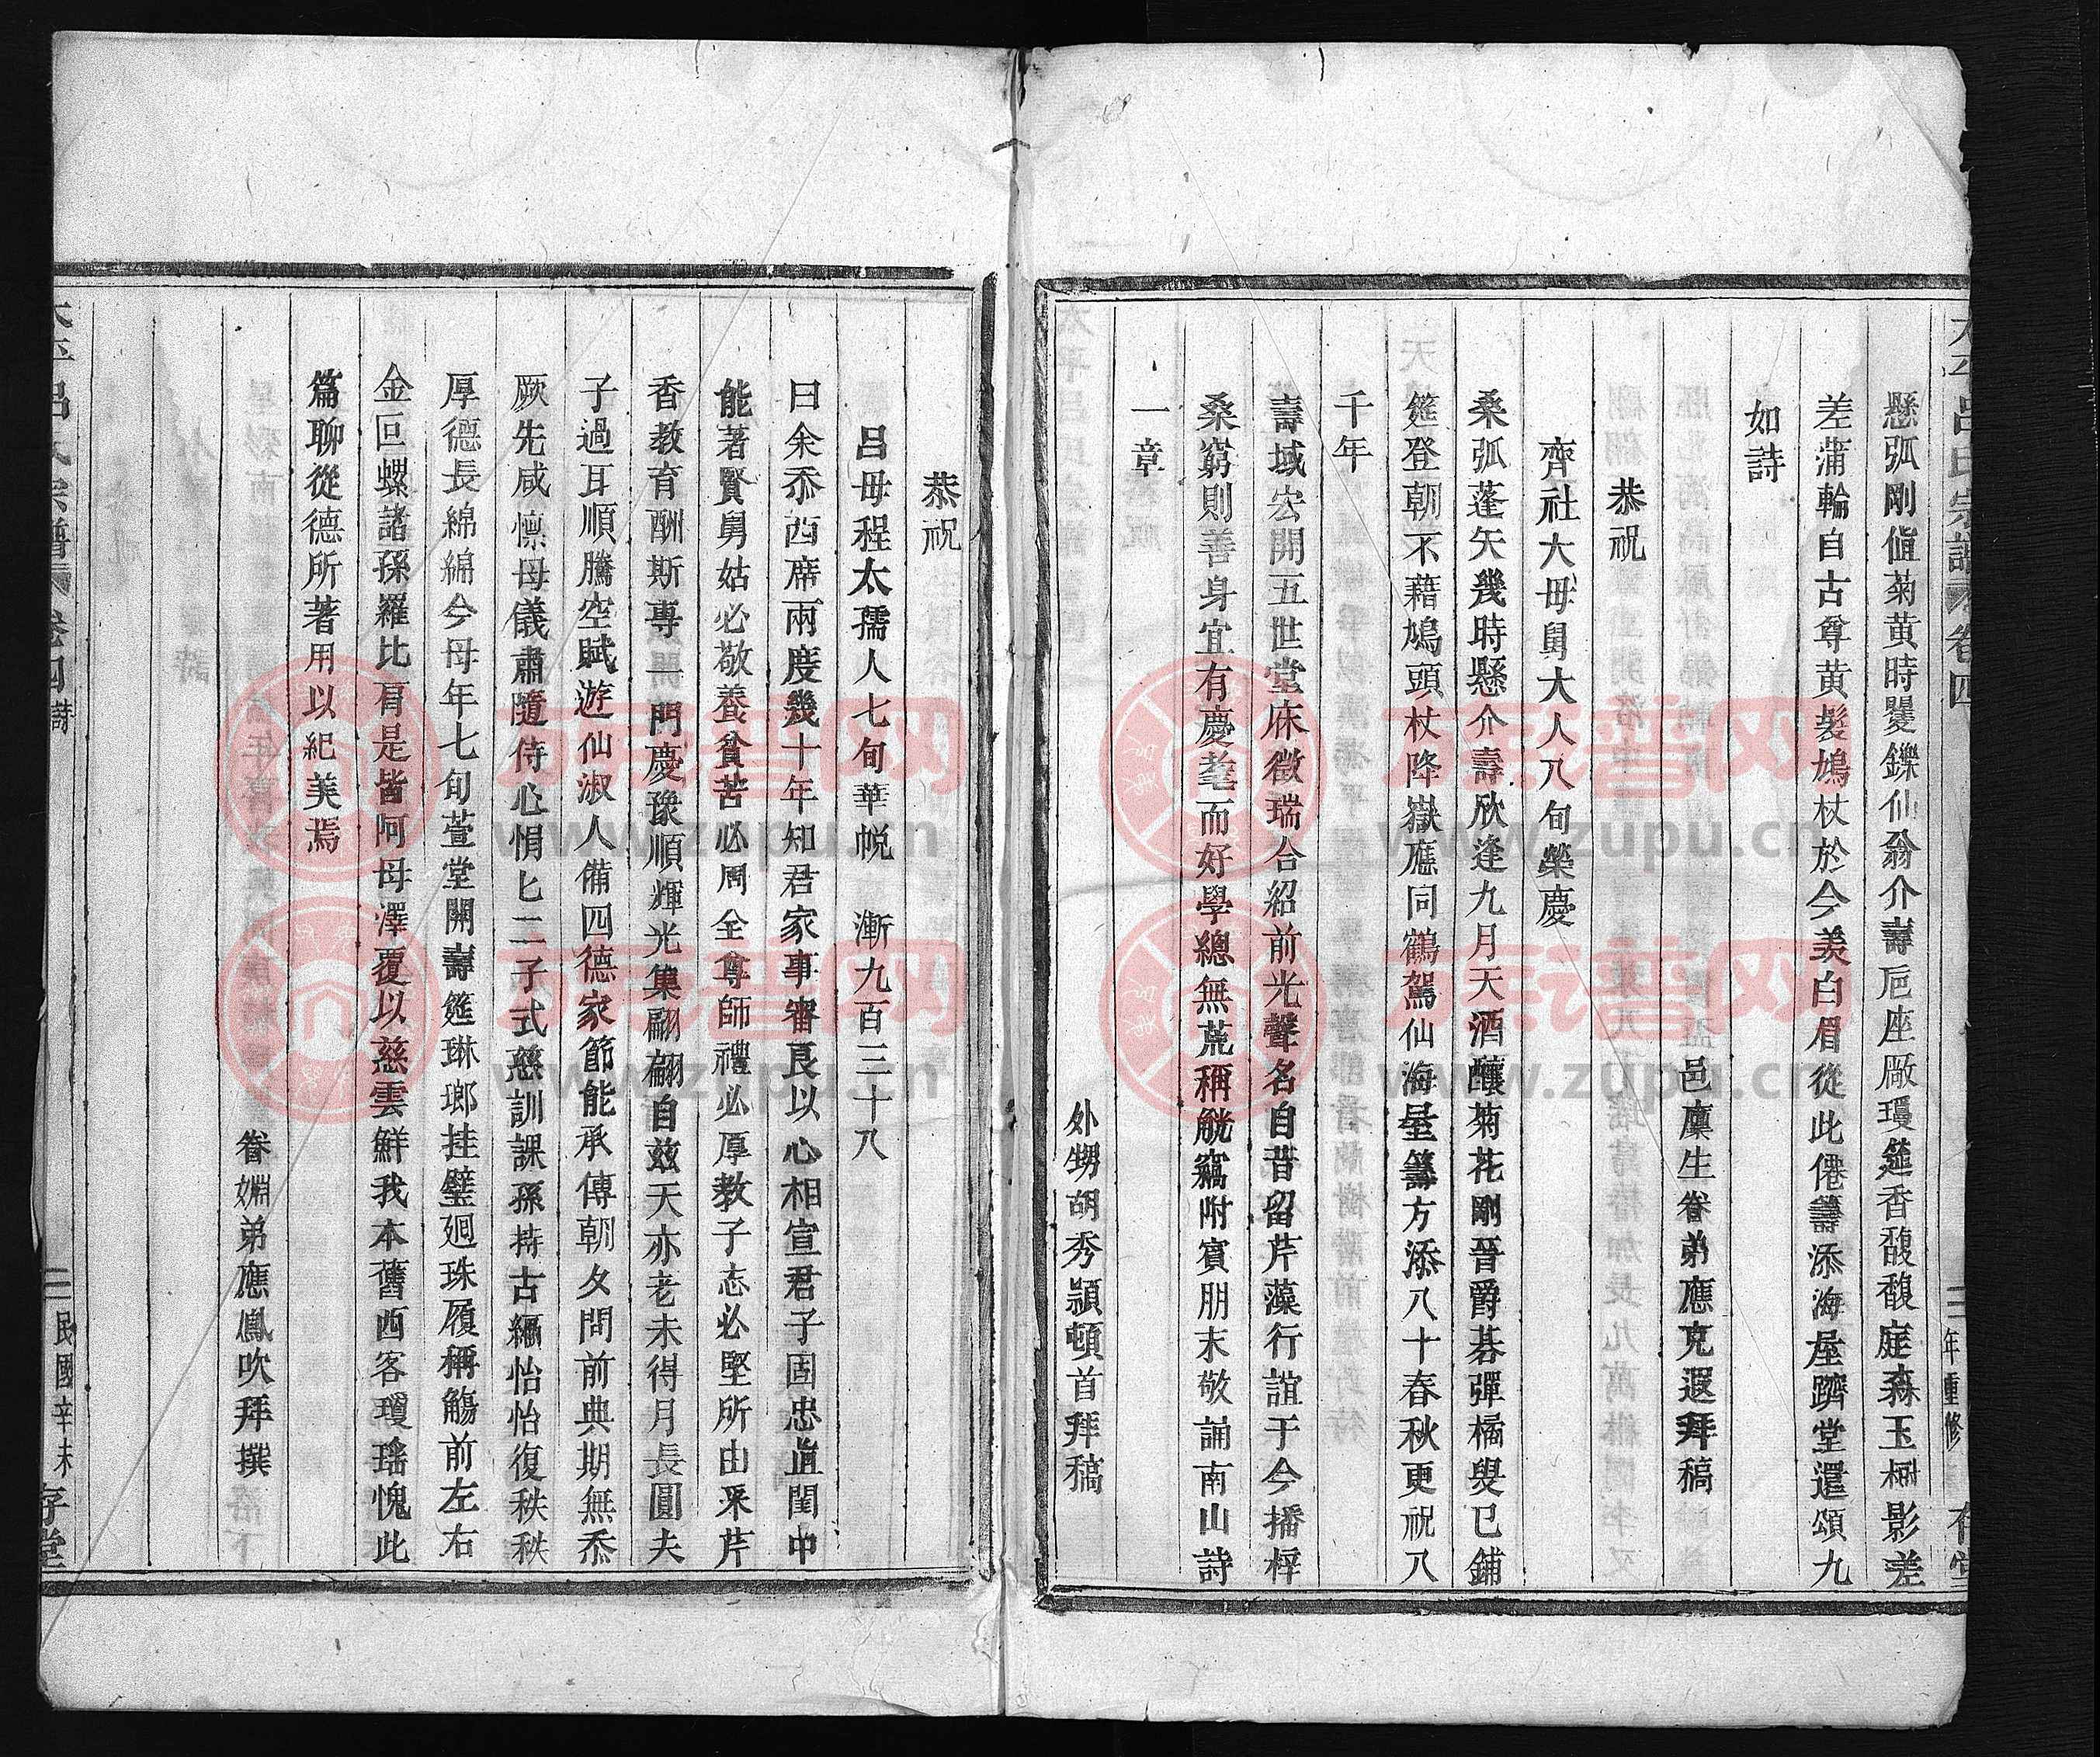 懸弧剛値菊黄時矍鑠仙翁介壽巵座厰瓊筵香馥馥庭森玉樹影差
差蒲輪自古尊黄髮鳩杖於今羨白眉從此僊籌添海屋躋堂還頌九
如詩
邑廩生眷弟應克遐拜稿
恭祝
齊社大母舅大人八旬榮慶
桑弧蓬矢幾時懸介壽欣逢九月天酒釀菊花剛晉爵碁彈橘叟已鋪
筵登朝不藉鳩頭杖降嶽應同鶴駕仙海屋籌方添八十春秋更祝八
千年
壽域宏開五世堂庥徵瑞合紹前光聲名自昔留芹藻行誼于今播梓
桑窮則善身宜有慶耄而好學總無荒稱觥竊附賓朋末敬誦南山詩
一章
外甥胡秀頴頓首拜稿
恭祝
呂母程太孺人七旬華帨 漸九百三十八
曰余忝西席兩度幾十年知君家事審良以心相宣君子固忠直閨中
能著賢舅姑必敬養貧苦必周全尊師禮必厚教子志必堅所由采芹
香教育酬斯專里閈門慶豫順輝光集翩翩自玆天亦老未得月長圓夫
子過耳順騰空賦遊仙淑人備四德家節能承傳朝夕問前典期無忝
厥先咸懔母儀肅隨侍心悁匕二子式慈訓課孫持古編怡怡復秩秩
厚德長綿綿今母年七旬萱堂開壽筵琳瑯挂璧廻珠履稱觴前左右
金叵螺諸孫羅比肩是皆阿母澤覆以慈雲鮮我本舊西客瓊瑤愧此
篇聊從德所著用以紀美焉
眷婣弟應鳳吹拜撰
太平呂氏宗譜 卷四 詩 三 民國辛未 存堂
太平呂氏宗譜 卷四 三 年重修
族谱网
www.zupu.cn
族谱网
www.zupu.cn
族谱网
www.zupu.cn
族谱网
www.zupu.cn